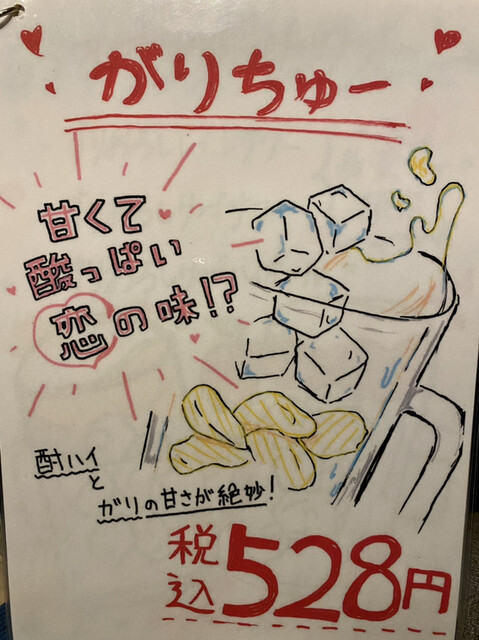 がりちゅー
甘くて
酸っぱい
恋の味!?
酎ハイ
と
ガリの甘さが絶妙!
税込528円